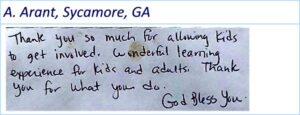 A. Arant, Sycamore, GA
Thank you so much for allowing kids
to get involved. Wonderful learning
experience for kids and adults. Thank
you for what you do.
God Bless You.